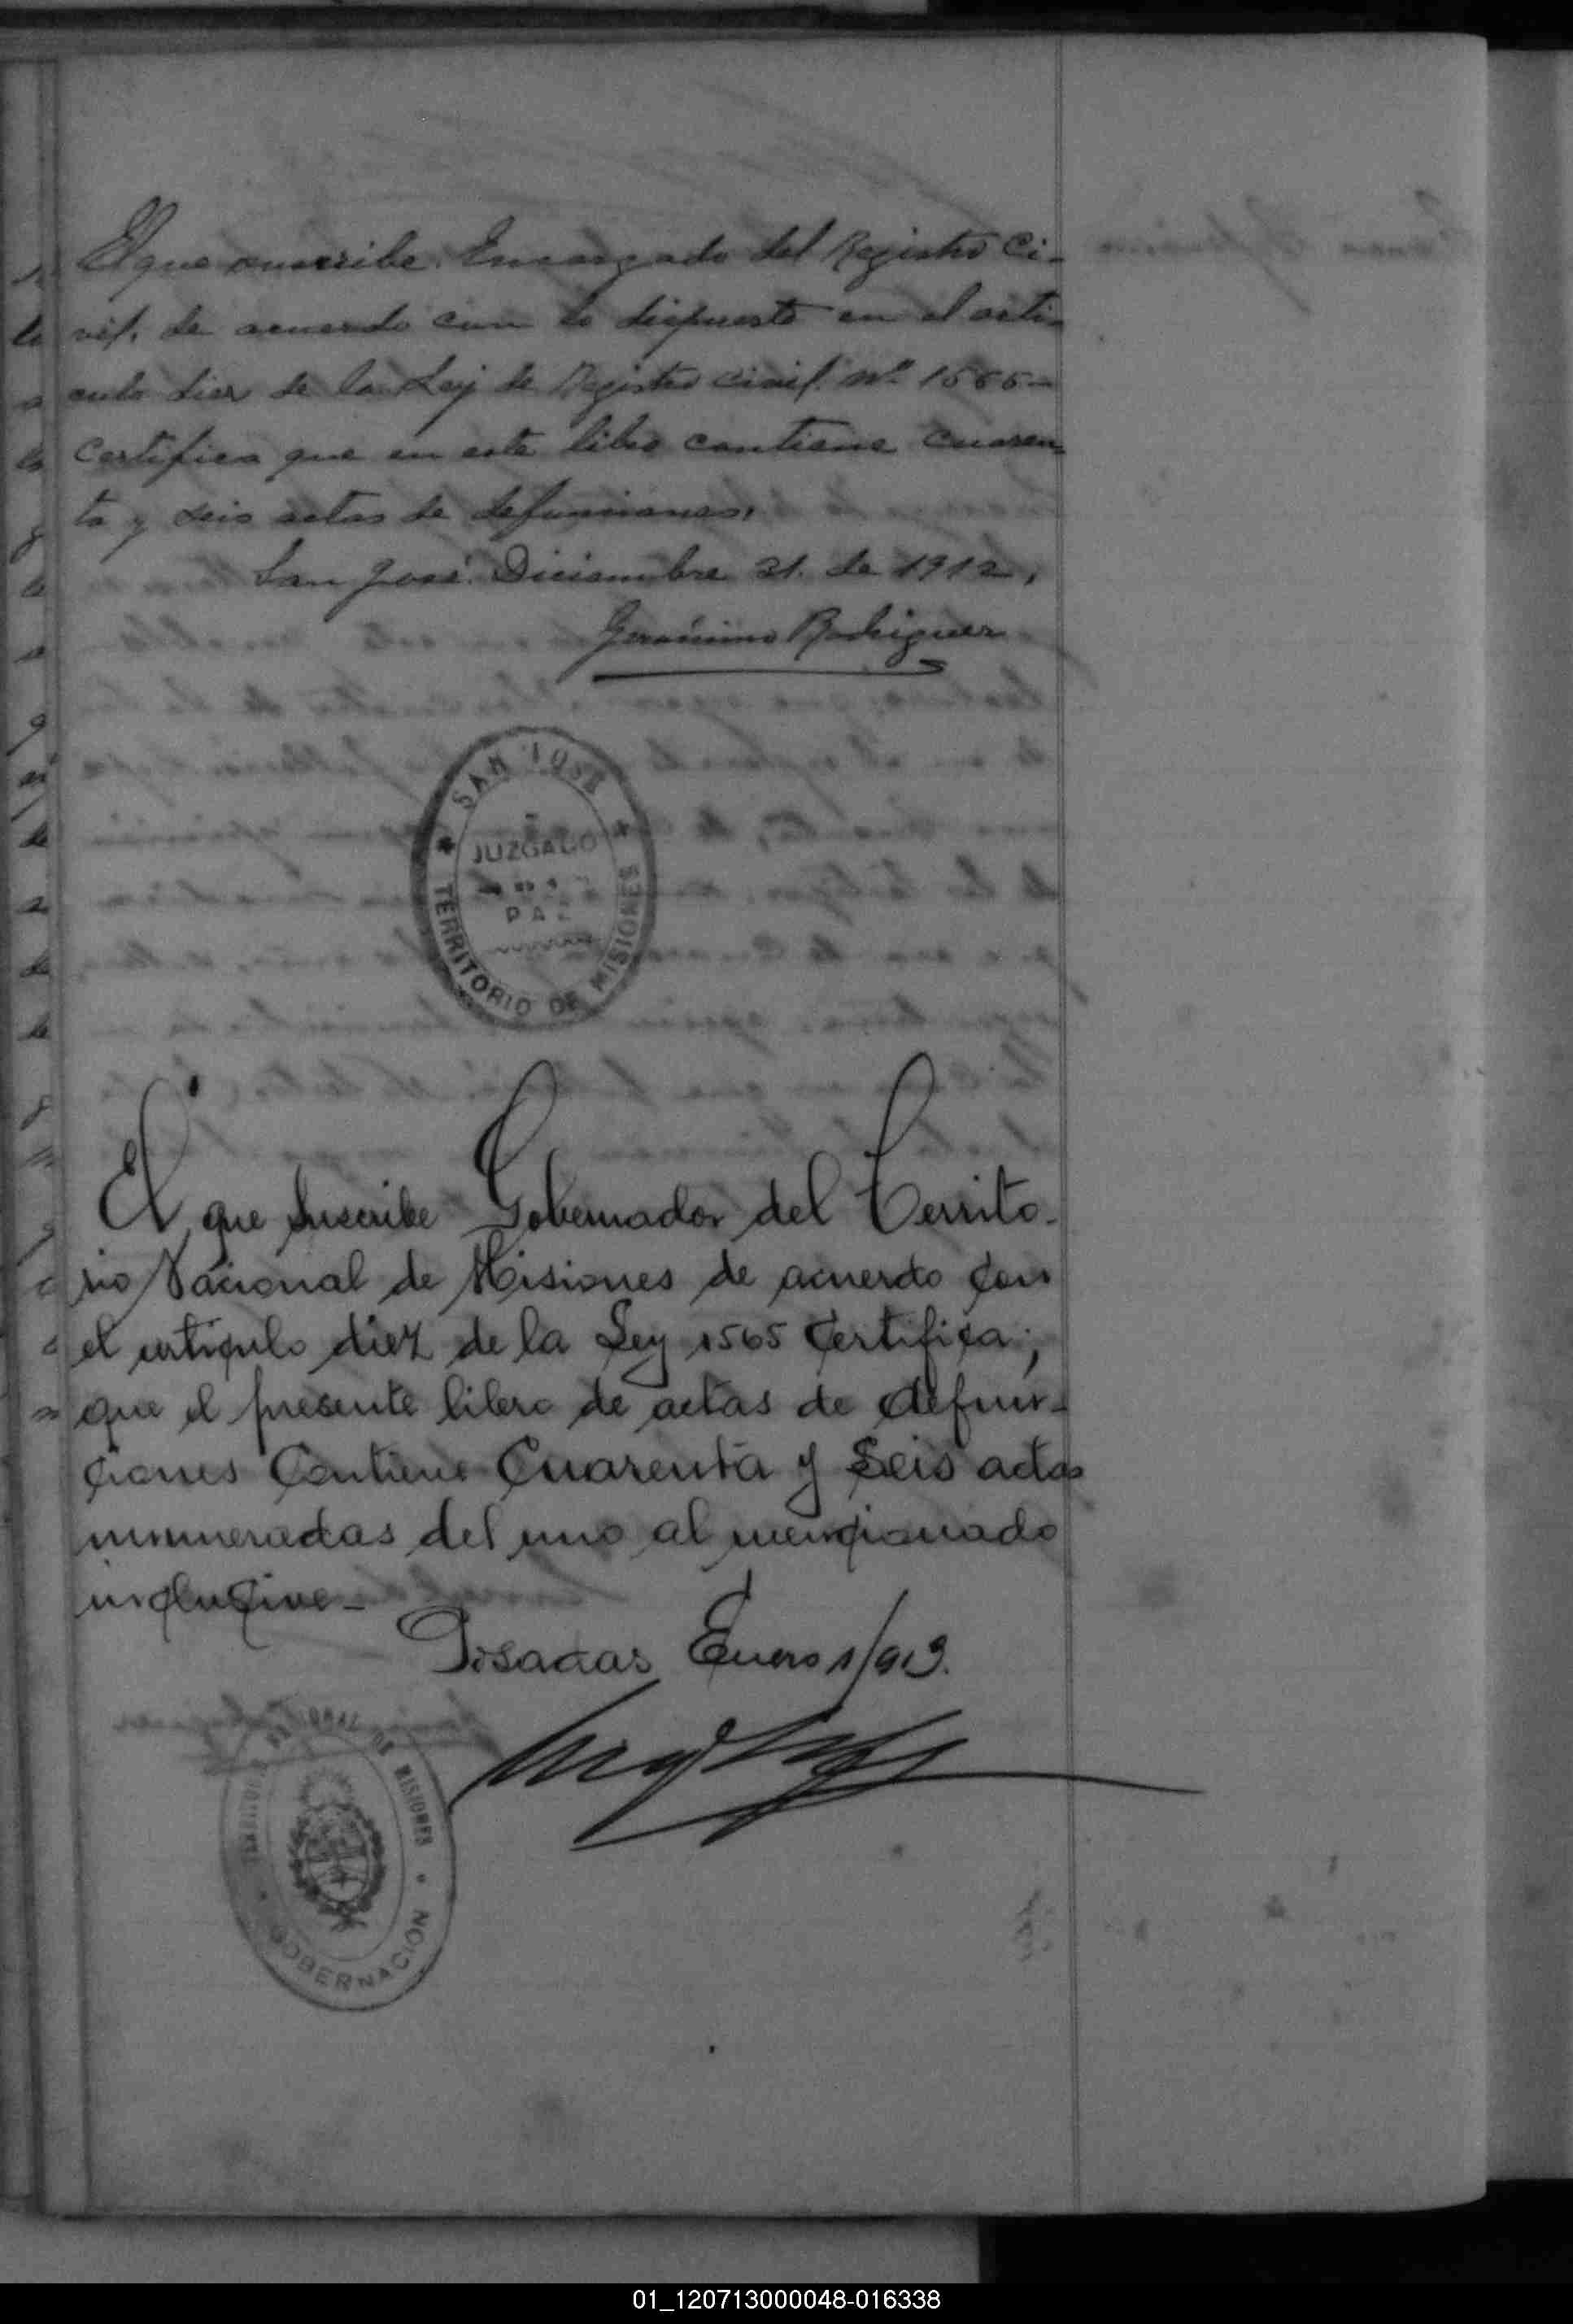 El que suscribe. Encargado del Registro Ci-
vil. de acuerdo con lo dispuesto en el arti-
culo diez de la Ley de Registro Civil. Nº 1565-
Certifica que en este libro contiene cuaren-
ta y seis actas de defunciones.
San José. Diciembre 31. de 1912.
Gerónimo Rodriguez
SAN JOSE
JUZGADO
DE
PAZ
TERRITORIO DE MISIONES
El que suscribe Gobernador del Territo-
rio Nacional de Misiones de acuerdo con
el articulo diez de la Ley 1565 Certifica;
que el presente libro de actas de defun-
ciones Contiene Cuarenta y Seis actas
numeradas del uno al mencionado
inclusive-
Posadas Enero 1/913.
DE MISIONES
GOBERNACION
01_120713000048-016338